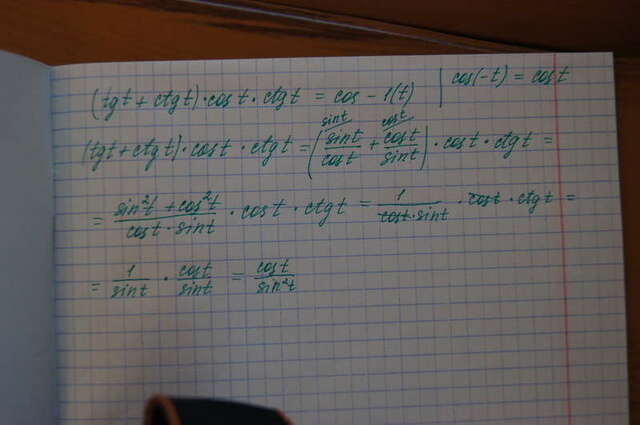 (tgt + ctgt) · cost · ctgt = cos - 1(t) | cos(-t) = cost
(tgt + ctgt) · cost · ctgt = (sint/ sint/cost + cost/ cost/sint) · cost · ctgt =
= sin²t + cos²t / cost · sint · cost · ctgt = 1 / cost · sint · cost · ctgt =
= 1/sint · cost/sint = cost/sin²t